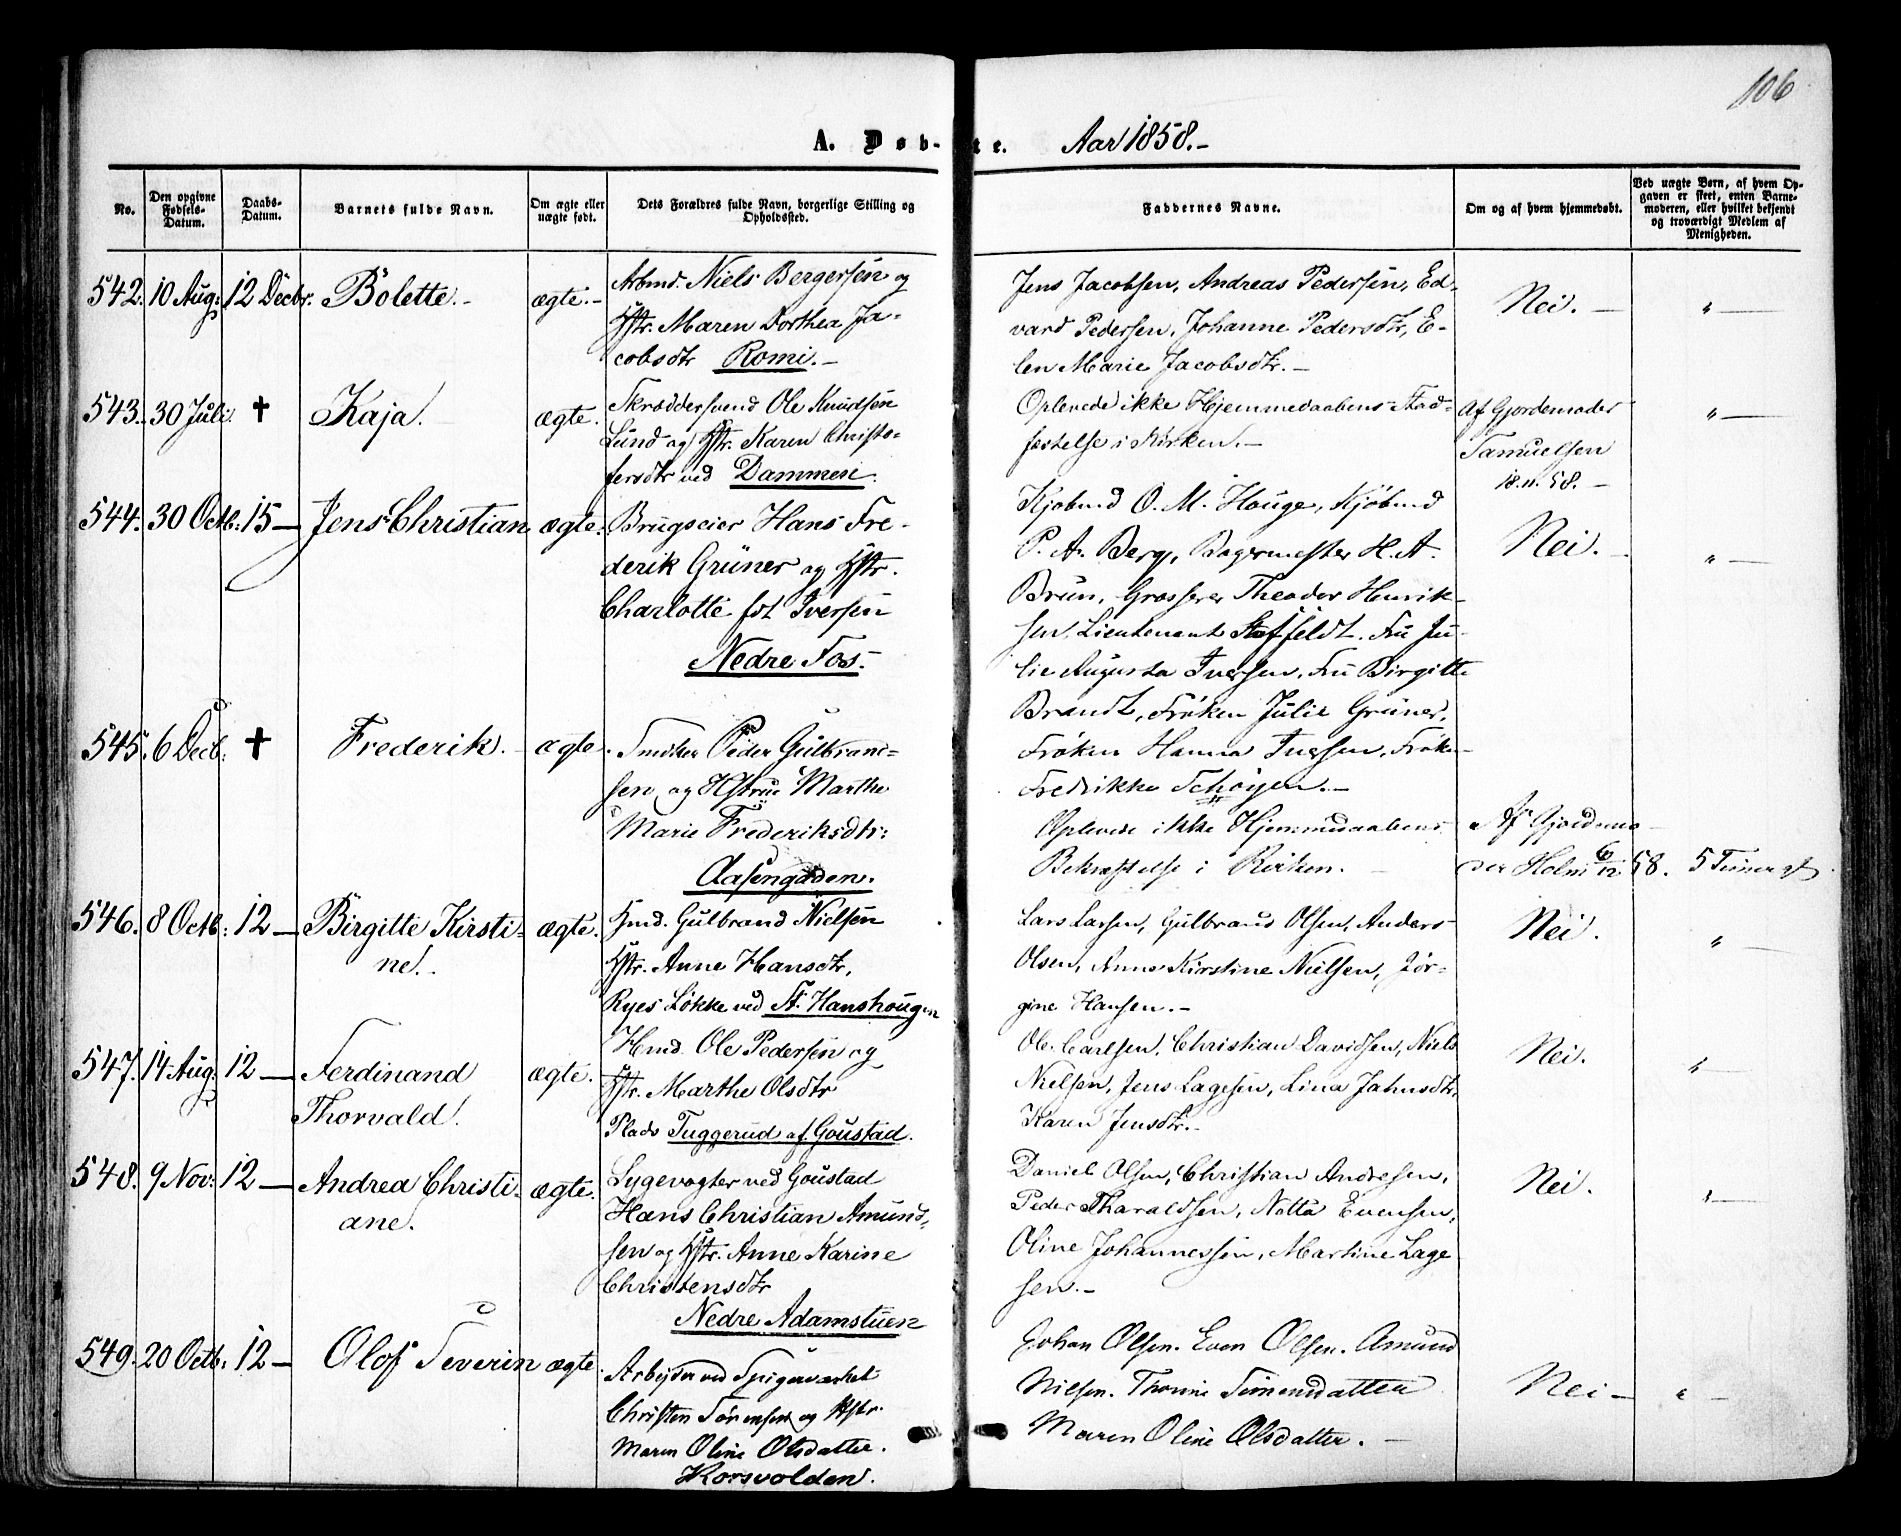 106
A. Døb-te. Aar 1858.-
No.
Den opgivne Fødsels-Datum.
Daabs-Datum.
Barnets fulde Navn.
Om ægte eller uægte født.
Dets Forældres fulde Navn, borgerlige Stilling og Opholdssted.
Faddernes Navne.
Om og af hvem hjemmedøbt.
Ved uægte Børn, af hvem Opgaven er skeet, enten Barnemoderen, eller hvilket bekjendt og troværdigt Medlem af Menigheden.
542. 10 Aug: 12 Decbr. Bolette.- ægte.-
Arbmd. Niels Bergersen og
Hstr. Maren Dorthea Ja-
cobsdtr Romi.-
Jens Jacobsen, Andreas Pedersen, Ed-
vard Pedersen, Johanne Pedersdtr, E-
len Marie Jacobsdtr.-
Nei. - " -
543. 30 Juli. † Kaja. ægte.
Skræddersvend Ole Knudsen
Lund og Hstr. Karen Christo-
fersdtr ved Dammen.
Oplevede ikke Hjemmedaabens Stad-
fæstelse i Kirken.-
Af Gjordemoder
Samuelsen
18.11.58.-
" -
544. 30 Octb. 15- Jens Christian ægte.
Brugseier Hans Fre-
derik Grüner og Hstr.
Charlotte fdt Iversen
Nedre Fos.-
Kjøbmd O. M. Hauge, Kjöbmd
P. A. Berg, Bagermester H. A.
Brun, Grosserer Theodor Henrik-
sen, Lieutenant Staffeldt. Fru Ju-
lie Augusta Iversen, Fru Birgitte
Brandt, Frøken Julie Grüner,
Frøken Hanna Iversen, Frøken
Fredrikke Schøyen.-
Nei. - " -
545. 6 Decb: † Frederik. - ægte.
Smeker Peder Gulbrand-
sen og Hstrue Marthe
Marie Frederiksdtr:
Aasengaden.
Oplevede ikke Hjemmedaabens
Bekræftelse i Kirken. -
Af Gjordemo-
der Holm 6/12 58.
5 Timer gl.
546. 8 Octb: 12- Birgitte Kirsti-
ne.- ægte.
Hmd. Gulbrand Nielsen
Hstr. Anne Hansdtr,
Ryes Løkke ved St. Hanshougen
Lars Larsen, Gulbrand Olsen, Anders
Olsen, Anne Kirstine Nielsen, Jør-
gine Hansen.-
Nei. " -
547. 14 Aug: 12- Ferdinand
Thorvald. ægte.
Hmd. Ole Pedersen og
Hstr. Marthe Olsdtr
Plads Tuggerud af Goustad.
Ole Carlsen, Christian Davidsen, Niels
Nielsen, Jens Lagesen, Lina Jahnsdtr,
Karen Jensdtr.-
Nei. " -
548. 9 Nov: 12- Andrea Christi-
ane. ægte.
Sygevogter ved Goustad
Hans Christian Amund-
sen og Hstr. Anne Karine
Christensdtr
Nedre Adamstuen
Daniel Olsen, Christian Andresen,
Peder Tharaldsen, Natta Evensen,
Oline Johannessen, Martine Lage
sen.-
Nei. " -
549. 20 Octb: 12- Olof Severin ægte.
Arbeyder ved Spigerværket
Christen Sørensen og Hstr.
Maren Oline Olsdatter.
Korsvolden.
Johan Olsen. Even Olsen. Amund
Nilsen. Thorine Simensdatter
Maren Oline Olsdatter. -
Nei - " -